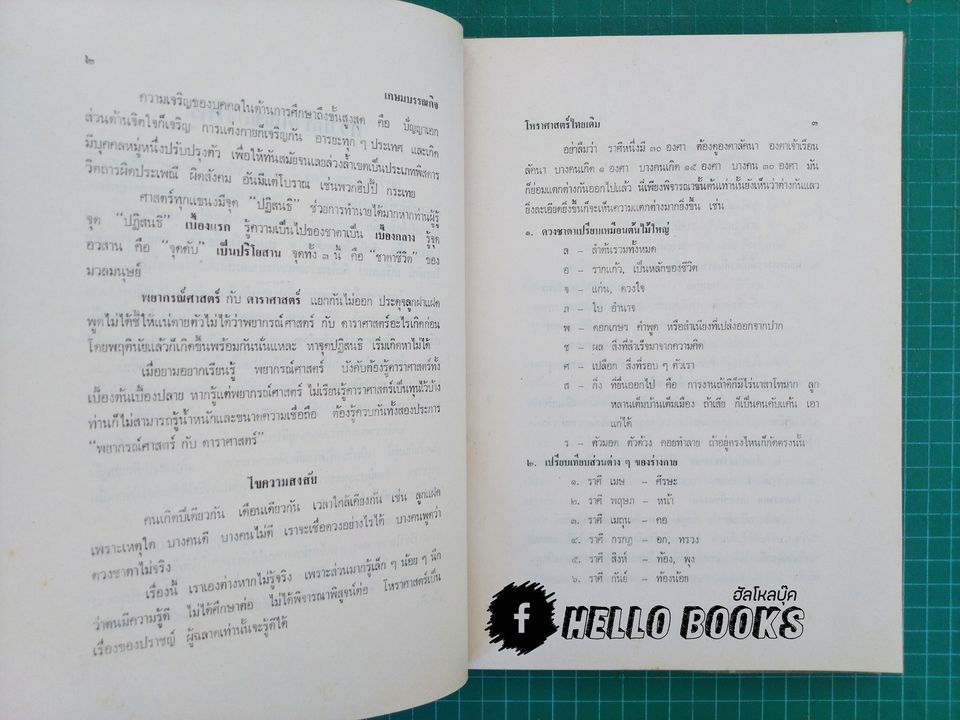 ๒
เกษมบรรณกิจ
ความเจริญของบุคคลในด้านการศึกษาถึงขั้นสูงสุด คือ ปัญญาเอก
ส่วนด้านจิตใจก็เจริญ การแต่งกายก็เจริญกัน อารยะทุก ๆ ประเทศ และเกิด
มีบุคคลหมู่หนึ่งปรับปรุงตัว เพื่อให้ทันสมัยจนเลยล่วงล้ำเขตเป็นประเภทพิสดาร
วิตถารผิดประเพณี ผิดสังคม อันมีแต่โบราณ เช่นพวกฮิปปี้ กระเทย
ศาสตร์ทุกแขนงมีจุด “ปฏิสนธิ” ช่วยการทำนายได้มากหากท่านผู้รู้
จุด “ปฏิสนธิ” เบื้องแรก รู้ความเป็นไปของชาตาเป็น เบื้องกลาง รู้จุด
อวสาน คือ “จุดดับ” เป็นปริโยสาน จุดทั้ง ๓ นี้ คือ “ชาตาชีวิต” ของ
มวลมนุษย์
พยากรณ์ศาสตร์ กับ ดาราศาสตร์ แยกกันไม่ออก ประดุจลูกฝาแฝด
พูดไม่ได้ชี้ให้แน่ตายตัวไม่ได้ว่าพยากรณ์ศาสตร์ กับ ดาราศาสตร์อะไรเกิดก่อน
โดยพฤตินัยแล้วก็เกิดขึ้นพร้อมกันนั่นแหละ หาจุดปฏิสนธิ เริ่มเกิดหาไม่ได้
เมื่อยามอยากเรียนรู้ พยากรณ์ศาสตร์ บังคับต้องรู้ดาราศาสตร์ทั้ง
เบื้องต้นเบื้องปลาย หากรู้แต่พยากรณ์ศาสตร์ ไม่เรียนรู้ดาราศาสตร์เป็นทุนไว้บ้าง
ท่านก็ไม่สามารถรู้น้ำหนักและขนาดความเชื่อถือ ต้องรู้ควบกันทั้งสองประการ
“พยากรณ์ศาสตร์ กับ ดาราศาสตร์”
ไขความสงสัย
คนเกิดปีเดียวกัน เดือนเดียวกัน เวลาใกล้เคียงกัน เช่น ลูกแฝด
เพราะเหตุใด บางคนดี บางคนไม่ดี เราจะเชื่อดวงอย่างไรได้ บางคนพูดว่า
ดวงชาตาไม่จริง
เรื่องนี้ เราเองต่างหากไม่รู้จริง เพราะส่วนมากรู้เล็ก ๆ น้อย ๆ นึก
ว่าตนมีความรู้ดี ไม่ได้ศึกษาต่อ ไม่ได้พิจารณาพิสูจน์ต่อ โหราศาสตร์เป็น
เรื่องของปราชญ์ ผู้ฉลาดเท่านั้นจะรู้ดีได้
โหราศาสตร์ไทยเดิม
๓
อย่าลืมว่า ราศีหนึ่งมี ๓๐ องศา ต้องดูองศาลัคนา องศาเจ้าเรือน
ลัคนา บางคนเกิด ๑ องศา บางคนเกิด ๑๕ องศา บางคน ๓๐ องศา มัน
ก็ย่อมแตกต่างกันออกไปแล้ว นี่เพียงพิจารณาขั้นต้นเท่านั้นยังเห็นว่าต่างกันแลว
ยิ่งละเอียดยิ่งขึ้นก็จะเห็นความแตกต่างมากยิ่งขึ้น เช่น
๑. ดวงชาตาเปรียบเหมือนต้นไม้ใหญ่
ล – ลำต้นรวมทั้งหมด
อ – รากแก้ว, เป็นหลักของชีวิต
จ – แก่น, ดวงใจ
ภ – ใบ อำนาจ
พ – ดอกเกษร คำพูด หรือสำเนียงที่เปล่งออกจากปาก
ช – ผล สิ่งที่สำเร็จมาจากความคิด
ศ – เปลือก สิ่งที่รอบ ๆ ตัวเรา
ส – กิ่ง ที่ยื่นออกไป คือ การงานถ้าดีก็มีไร่นาสาโทมาก ลูก
หลานเต็มบ้านเต็มเมือง ถ้าเสีย ก็เป็นคนคับแค้น เอา
แก่ได้
ร – ตัวมอด ตัวด้วง คอยทำลาย ถ้าอยู่ตรงไหนก็กัดตรงนั้น
๒. เปรียบเทียบส่วนต่าง ๆ ของร่างกาย
๑. ราศี เมษ – ศีรษะ
๒. ราศี พฤษภ – หน้า
๓. ราศี เมถุน – คอ
๔. ราศี กรกฎ – อก, ทรวง
๕. ราศี สิงห์ – ท้อง, พุง
๖. ราศี กันย์ – ท้องน้อย
ฮัลโหลบุ๊ค
f HELLO BOOKS